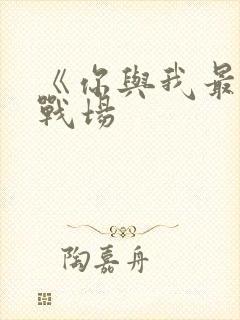 《你與我最
戰場
陶嘉舟